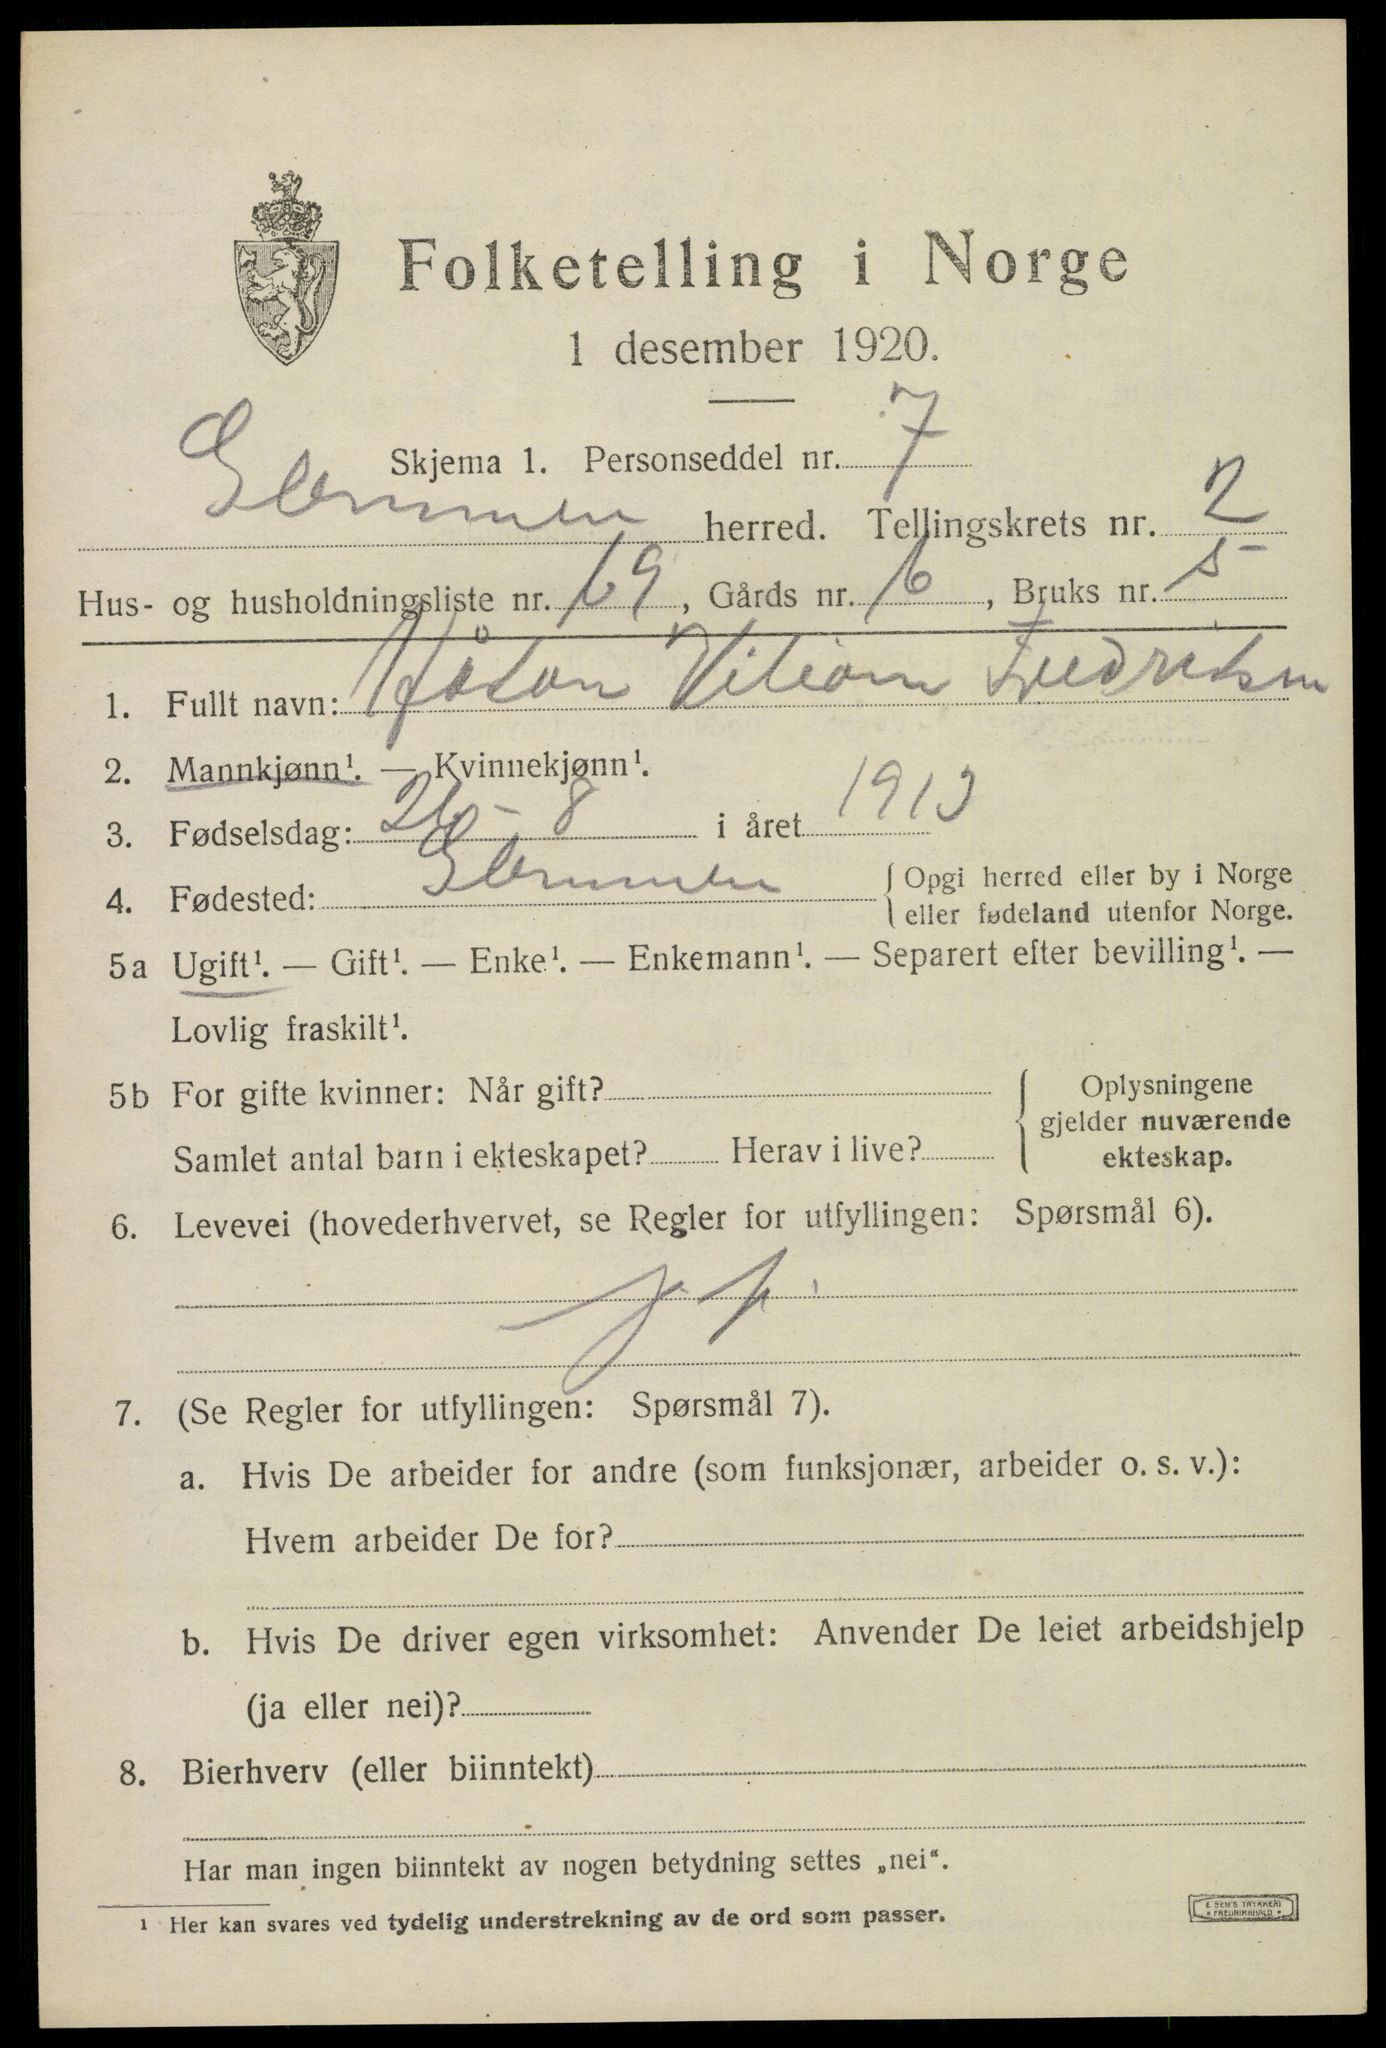 Folketelling i Norge
1 desember 1920.
Skjema 1. Personseddel nr. 7
Glemmen herred. Tellingskrets nr. 2
Hus- og husholdningsliste nr. 69, Gårds nr. 6, Bruks nr. 5
1. Fullt navn: Håkon Viliam Fredriksen
2. Mannkjønn¹. — Kvinnekjønn¹.
3. Fødselsdag: 26 - 8 i året 1913
4. Fødested: Glemmen { Opgi herred eller by i Norge
eller fødeland utenfor Norge.
5a Ugift¹. — Gift¹. — Enke¹. — Enkemann¹. — Separert efter bevilling¹. —
Lovlig fraskilt¹.
5b For gifte kvinner: Når gift? { Oplysningene
gjelder nuværende
Samlet antal barn i ekteskapet? Herav i live? ekteskap.
6. Levevei (hovederhvervet, se Regler for utfyllingen: Spørsmål 6).
7. (Se Regler for utfyllingen: Spørsmål 7).
a. Hvis De arbeider for andre (som funksjonær, arbeider o. s. v.):
Hvem arbeider De for?
b. Hvis De driver egen virksomhet: Anvender De leiet arbeidshjelp
(ja eller nei)?
8. Bierhverv (eller biinntekt)
Har man ingen biinntekt av nogen betydning settes „nei“.
¹ Her kan svares ved tydelig understrekning av de ord som passer.
E. SEM'S TRYKKERI
* FREDRIKSHALD *